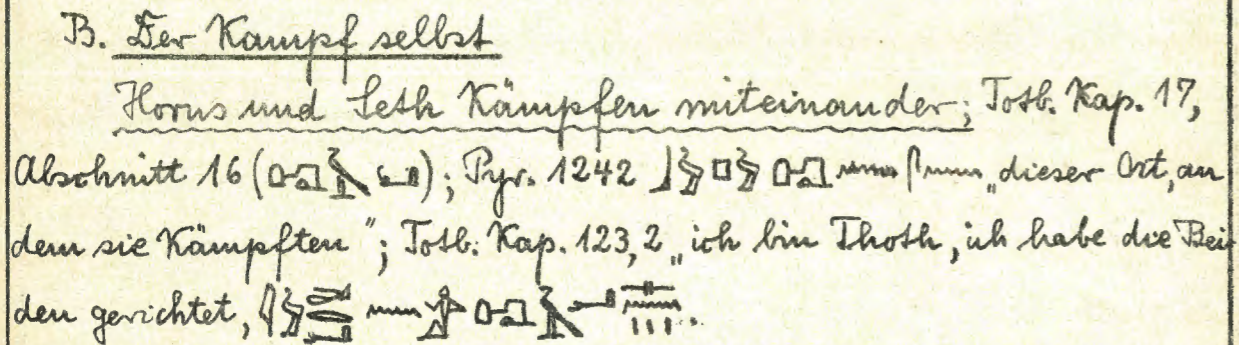 B. Der Kampf selbst
Horus und Seth Kämpfen miteinander; Totb. Kap. 17,
Abschnitt 16 (); Pyr. 1242 „dieser Ort, an
dem sie Kämpften"; Totb. Kap. 123,2 „ich bin Thoth, ich habe die Bei
den gerichtet,